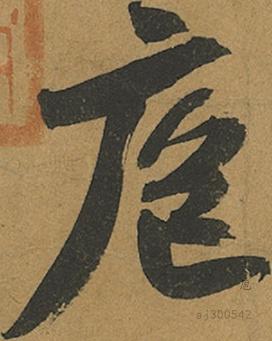 庖
aj300542